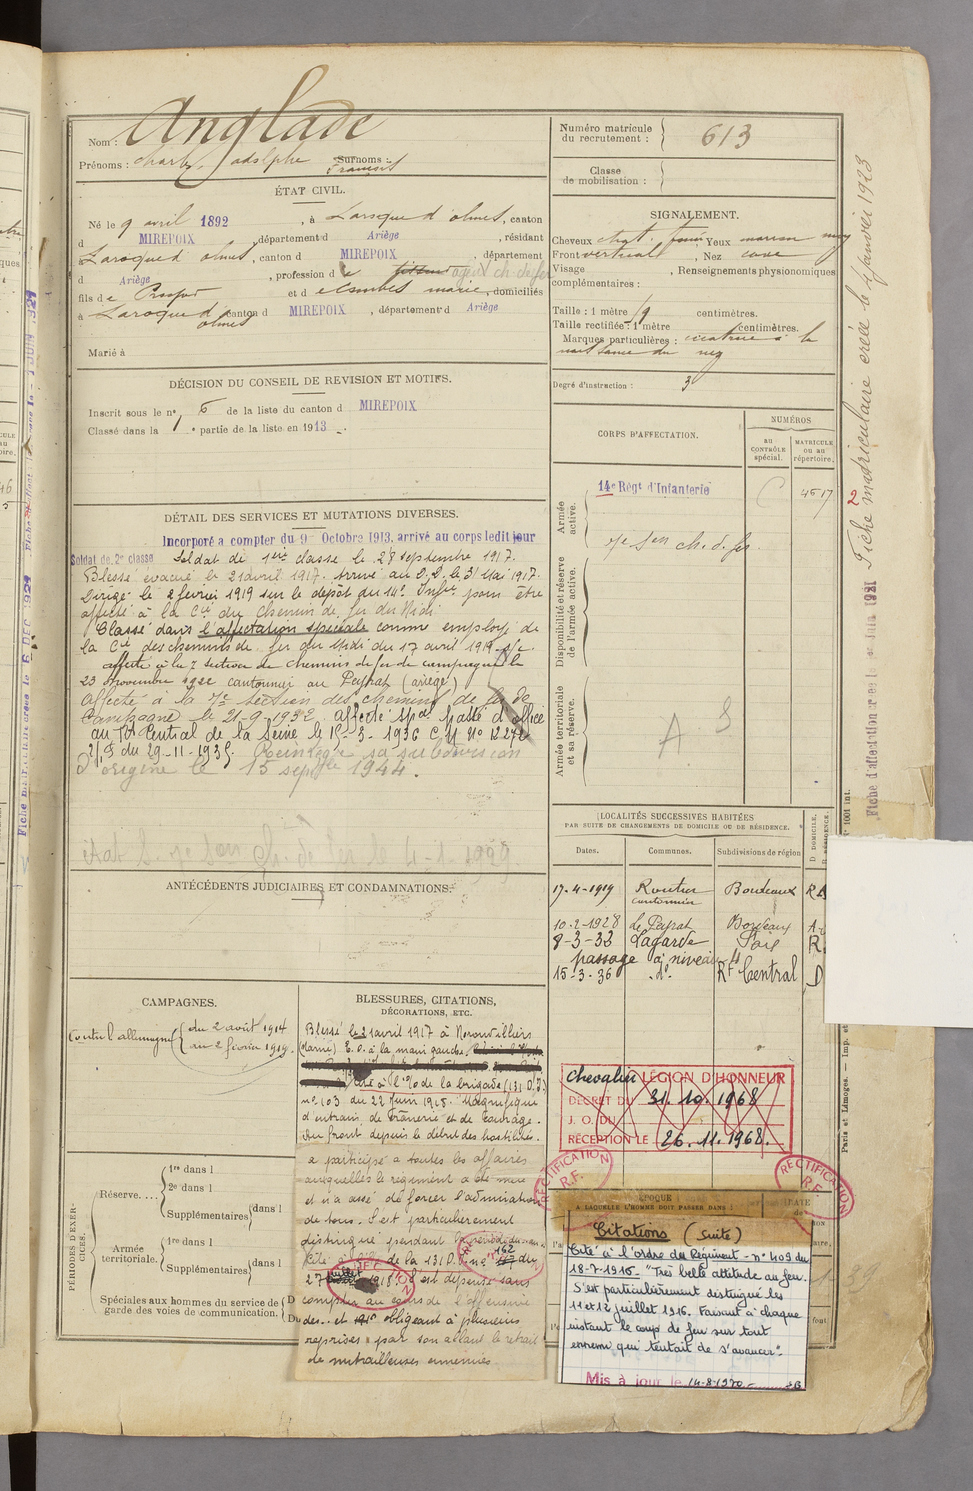 Nom : Anglade
Prénoms : Charles, adolphe Surnoms :
François
ÉTAT CIVIL.
Né le 9 avril 1892, à Laroque d'olmes, canton
d MIREPOIX, département d Ariège, résidant
Laroque d'olmes, canton d MIREPOIX, département
d Ariège, profession d e agent ch. de fer
fils de Prosper et d e Combes marie, domiciliés
à Laroque d'olmes canton d MIREPOIX, département d Ariège
Marié à
DÉCISION DU CONSEIL DE REVISION ET MOTIFS.
Inscrit sous le n° 6 de la liste du canton d MIREPOIX
Classé dans la 1 e partie de la liste en 1913.
DÉTAIL DES SERVICES ET MUTATIONS DIVERSES.
Incorporé a compter du 9 Octobre 1913, arrivé au corps ledit jour
Soldat de 2e classe Soldat de 1ère classe le 28 septembre 1917.
Blessé évacué le 21 avril 1917. Arrivé au D.D. le 31 Mai 1917.
Dirigé le 2 février 1919 sur le dépôt du 14e Infie pour être
affecté à la Cie du Chemin de fer du Midi
Classé dans l'affectation spéciale comme employé de
la Cie des chemins de fer du Midi du 17 avril 1919
affecté à la 7e section de chemins de fer de campagne le
23 novembre 1922 cantonnier au Peyrat (ariège)
Affecté à la 7e section des chemins de fer de
Campagne le 21-9-1932. Affecté spal passé d'office
au Rt Central de la Seine le 15-3-1936 C.M. N° 12272
2/1S du 29-11-1935. Réintègre sa subdivision
d'origine le 15 septbre 1944.
ANTÉCÉDENTS JUDICIAIRES ET CONDAMNATIONS.
CAMPAGNES.
Contre l'allemagne { du 2 août 1914
au 2 février 1919.
PÉRIODES D'EXERCICES.
Réserve....
1re dans l
2e dans l
Supplémentaires dans l
Armée territoriale.
1re dans l
Supplémentaires dans l
Spéciales aux hommes du service de
garde des voies de communication.
BLESSURES, CITATIONS,
DÉCORATIONS, ETC.
Blessé le 21 avril 1917 à Moronvilliers
(Marne) E.O. à la main gauche.
Cité à l'o/ de la brigade (131 D.I.)
n° 103 du 22 Juin 1915. Magnifique
d'entrain, de crânerie et de courage.
Au front depuis le début des hostilités.
a participé à toutes les affaires
auxquelles le régiment a été mêlé
et n'a cessé de forcer l'admiration
de tous. S'est particulièrement
distingué pendant la période du
de la 131 D.I. n° 162 du
27 juillet 1918. S'est dépensé sans
compter au cours de l'offensive
des.. et obligeant à plusieurs
reprises par son allant le retrait
de mitrailleuses ennemies
Numéro matricule
du recrutement : 613
Classe
de mobilisation :
SIGNALEMENT.
Cheveux chat. foncé Yeux marron
Front vertical, Nez cave
Visage, Renseignements physionomiques
complémentaires :
Taille : 1 mètre centimètres.
Taille rectifiée : 1 mètre centimètres.
Marques particulières : cicatrice à la
naissance du nez
Degré d'instruction : 3
CORPS D'AFFECTATION.
NUMÉROS
AU CONTRÔLE spécial.
MATRICULE ou au répertoire.
Armée active.
14e Régt d'Infanterie
C 4517
Disponibilité et réserve de l'armée active.
7e Son ch. d. fer.
Armée territoriale et sa réserve.
A S
LOCALITÉS SUCCESSIVES HABITÉES
PAR SUITE DE CHANGEMENTS DE DOMICILE OU DE RÉSIDENCE.
Dates. Communes. Subdivisions de région
17-4-1919 Routier cantonnier Bordeaux R
10-2-1928 le Peyrat Bordeaux
8-3-33 Lagarde Foix R
passage à niveau
15-3-36 d° Rt Central D
Chevalier LÉGION D'HONNEUR
DÉCRET DU 31.10.1968
J. O. DU
RÉCEPTION LE 26.11.1968.
RECTIFICATION R.F.
RECTIFICATION R.F.
ÉPOQUE
À LAQUELLE L'HOMME DOIT PASSER DANS :
DATE
Citations (suite)
Cité à l'ordre du Régiment - n° 409 du
18-7-1916 - "Très belle attitude au feu.
S'est particulièrement distingué les
11 et 12 juillet 1916. Faisant à chaque
instant le coup de feu sur tout
ennemi qui tentait de s'avancer".
Mis à jour le 14-8-1970
Fiche matriculaire créée le 4 janvier 1923
Fiche d'affectation créée le 1er Juin 1921
Paris et Limoges. — Imp. et